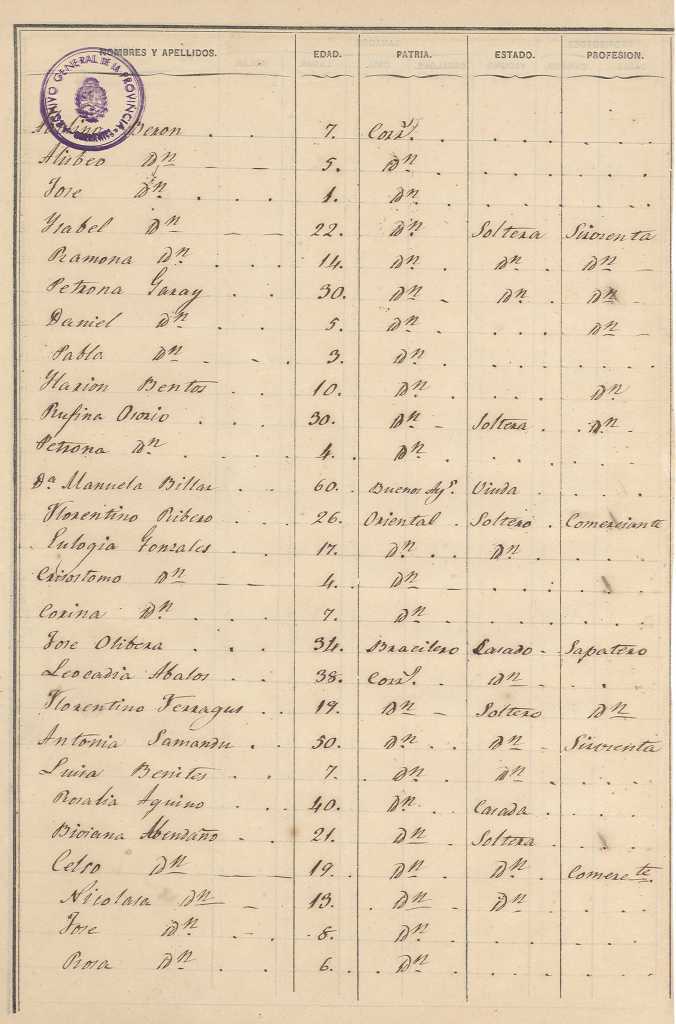 NOMBRES Y APELLIDOS. EDAD. PATRIA. ESTADO. PROFESION.
ARCHIVO GENERAL DE LA PROVINCIA
CORRIENTES
Beron 7. Corr.s
Alibeo Dn 5. Dn
Jose Dn 1. Dn
Ysabel Dn 22. Dn Soltera Sirvienta
Ramona Dn 14. Dn Dn Dn
Petrona Garay 30. Dn Dn Dn
Daniel Dn 5. Dn Dn
Pabla Dn 3. Dn
Ylarion Bentos 10. Dn Dn
Rufina Osorio 30. Dn Soltera Dn
Petrona Dn 4. Dn
Da Manuela Billar 60. Buenos Ays. Viuda
Florentino Ribero 26. Oriental Soltero Comerciante
Eulogia Gonzales 17. Dn Dn
Crisostomo Dn 4. Dn
Corina Dn 7. Dn
Jose Olibera 34. Bracilero Casado Sapatero
Leocadia Abalos 38. Corrs. Dn
Florentino Ferragus 19. Dn Soltero Dn
Antonia Samandu 50. Dn Dn Sirvienta
Luisa Benites 7. Dn Dn
Rosalia Aquino 40. Dn Casada
Biviana Abendaño 21. Dn Soltera
Celso Dn 19. Dn Dn Comerc.te
Nicolasa Dn 13. Dn Dn
Jose Dn 8. Dn
Rosa Dn 6. Dn